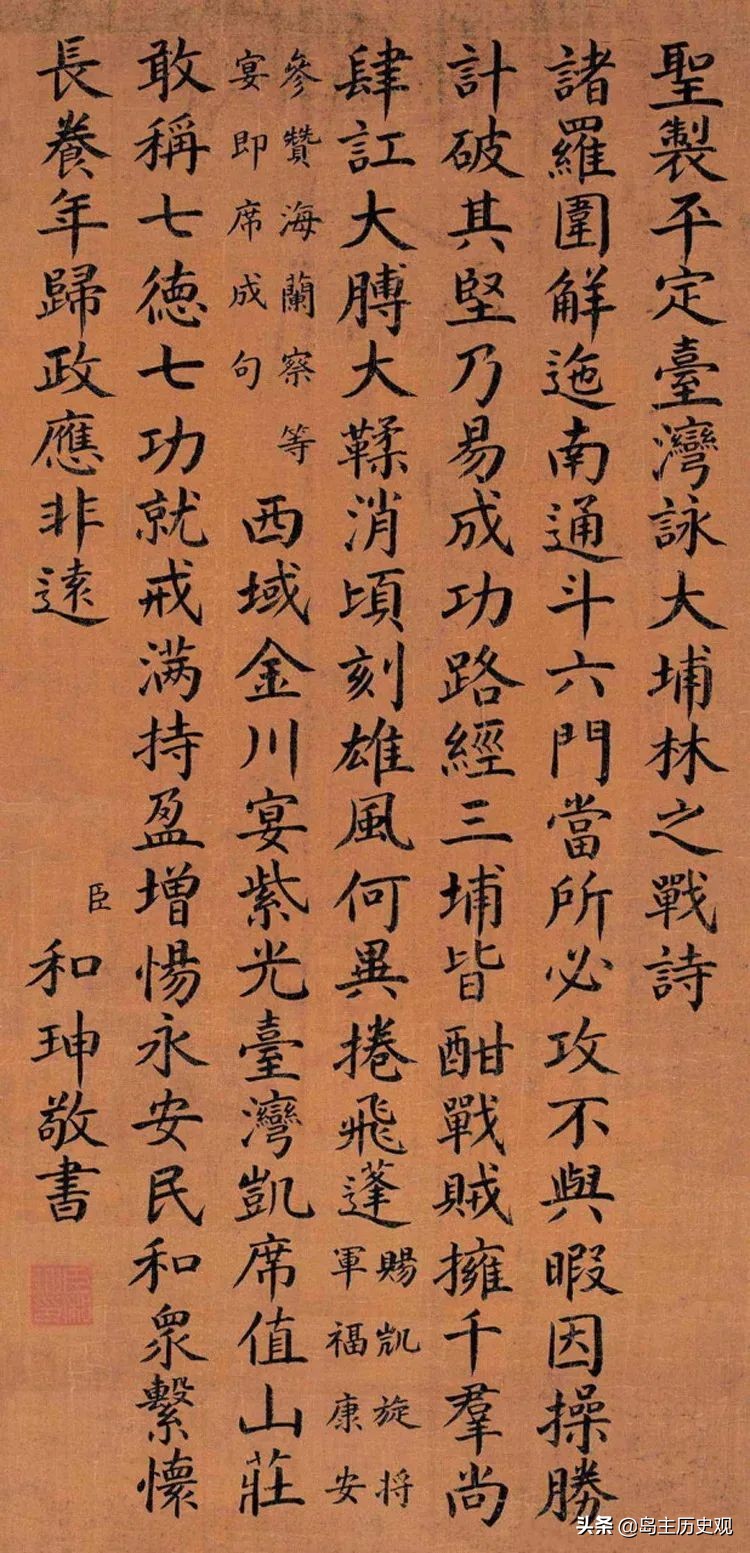 聖製平定臺灣詠大埔林之戰詩
諸羅圍解迤南通斗六門當所必攻不與暇因操勝
計破其堅乃易成功路經三埔皆酣戰賊擁千羣尚
肆訌大膊大鞣消頃刻雄風何異捲飛蓬
賜凱旋将
軍福康安
參贊海蘭察等
宴即席成句
西域金川宴紫光臺灣凱席值山莊
敢稱七德七功就戒满持盈增惕永安民和衆繫懷
長養年歸政應非遠
臣
和珅敬書
头条 @岛主历史观